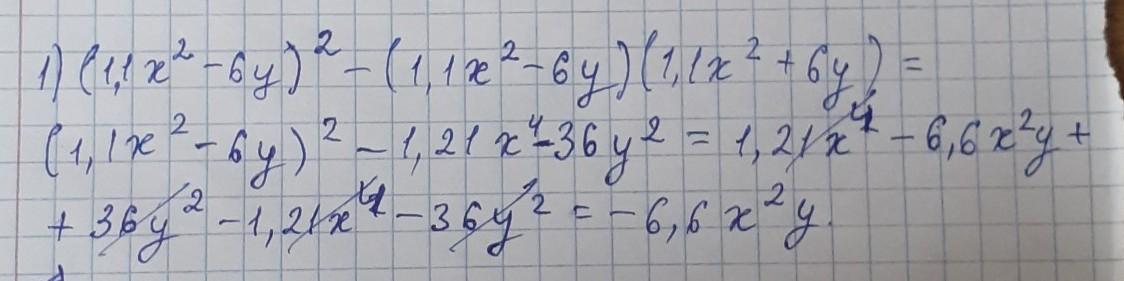 1) (1,1x² - 6y)² - (1,1x² - 6y)(1,1x² + 6y) =
(1,1x² - 6y)² - 1,21x⁴ - 36y² = 1,21x⁴ - 6,6x²y +
+ 36y² - 1,21x⁴ - 36y² = -6,6x²y.